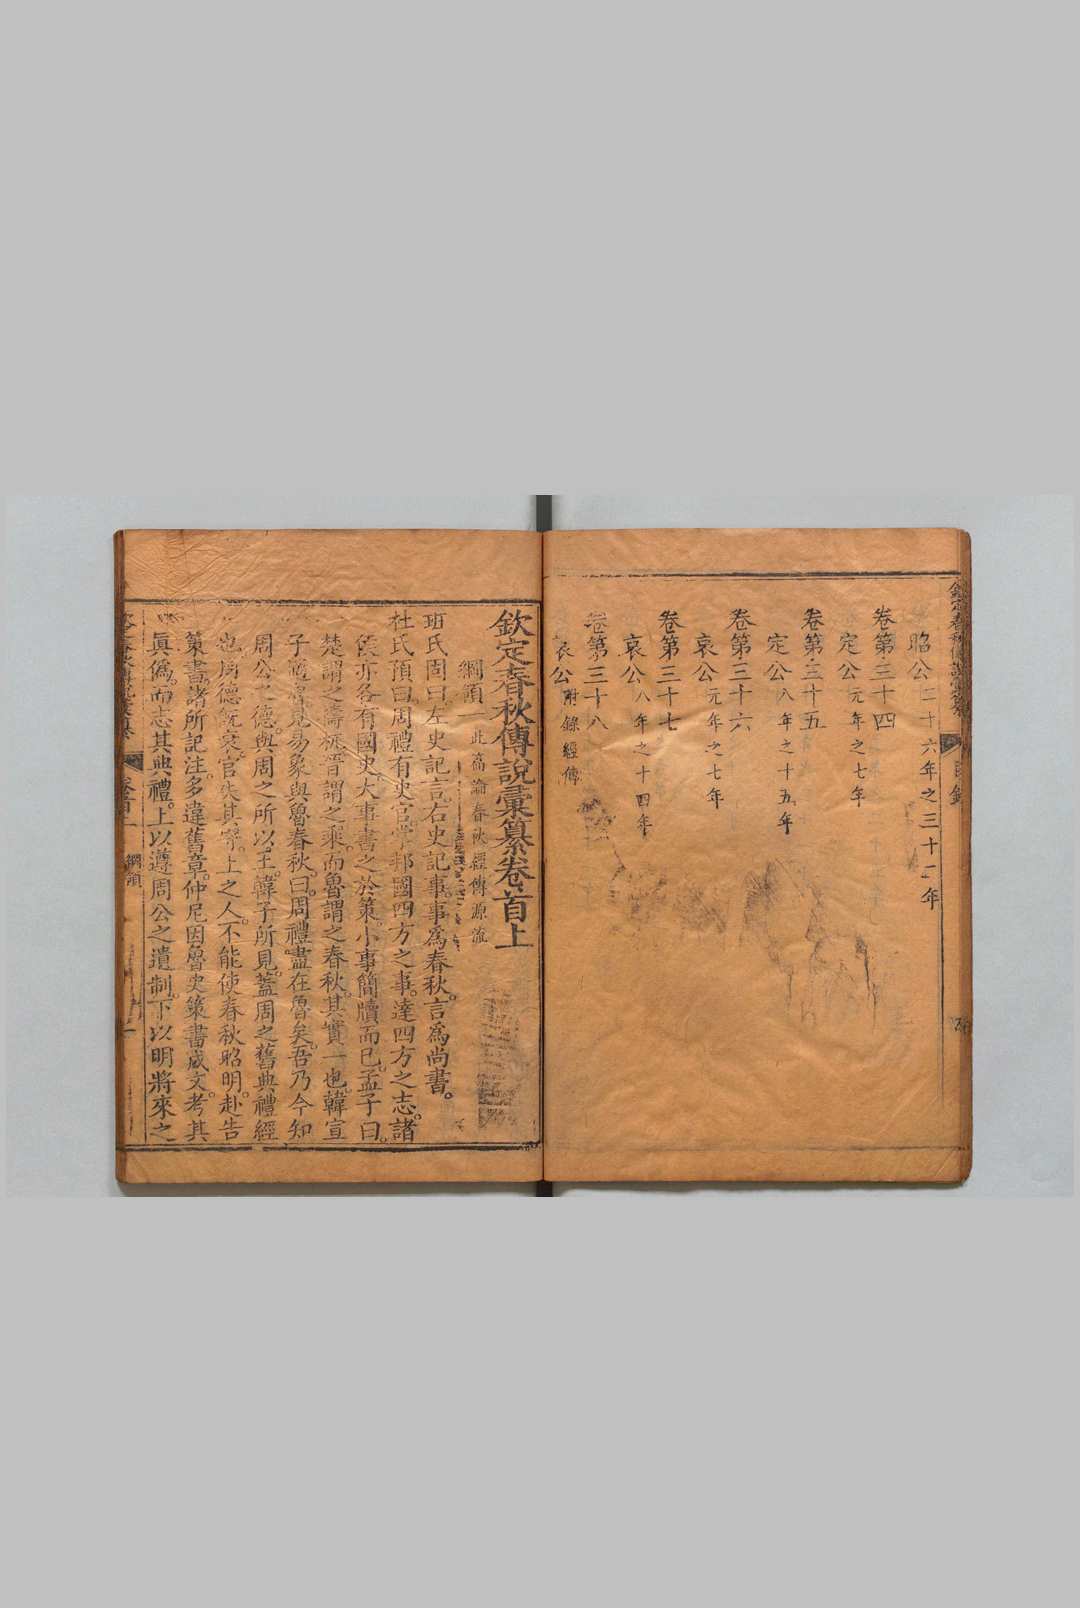 欽定春秋傳說彙纂 目錄
昭公二十六年之三十二年
卷第三十四
定公元年之七年
卷第三十五
定公八年之十五年
卷第三十六
哀公元年之七年
卷第三十七
哀公八年之十四年
卷第三十八
哀公附錄經傳
欽定春秋傳說彙纂卷首上
綱領一此篇論春秋經傳源流
班氏固曰左史記言右史記事。事爲春秋。言爲尚書。
杜氏預曰周禮有史官。掌邦國四方之事。達四方之志。諸
侯亦各有國史。大事書之於策。小事簡牘而已。孟子曰。
楚謂之檮杌。晉謂之乘。而魯謂之春秋。其實一也。韓宣
子適魯見易象與魯春秋。曰。周禮盡在魯矣。吾乃今知
周公之德。與周之所以王。韓子所見。蓋周之舊典禮經
也。周德旣衰。官失其守。上之人。不能使春秋昭明。赴告
策書。諸所記注。多違舊章。仲尼因魯史策書成文。考其
眞僞。而志其典禮。上以遵周公之遺制。下以明將來之
綱領